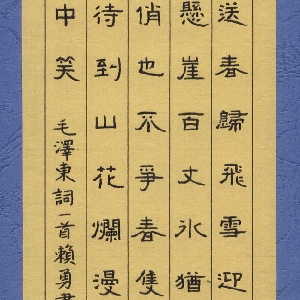 送春歸飛雪迎
懸崖百丈冰猶
俏也不爭春隻
待到山花爛漫
中笑 毛澤東詞一首賴勇書